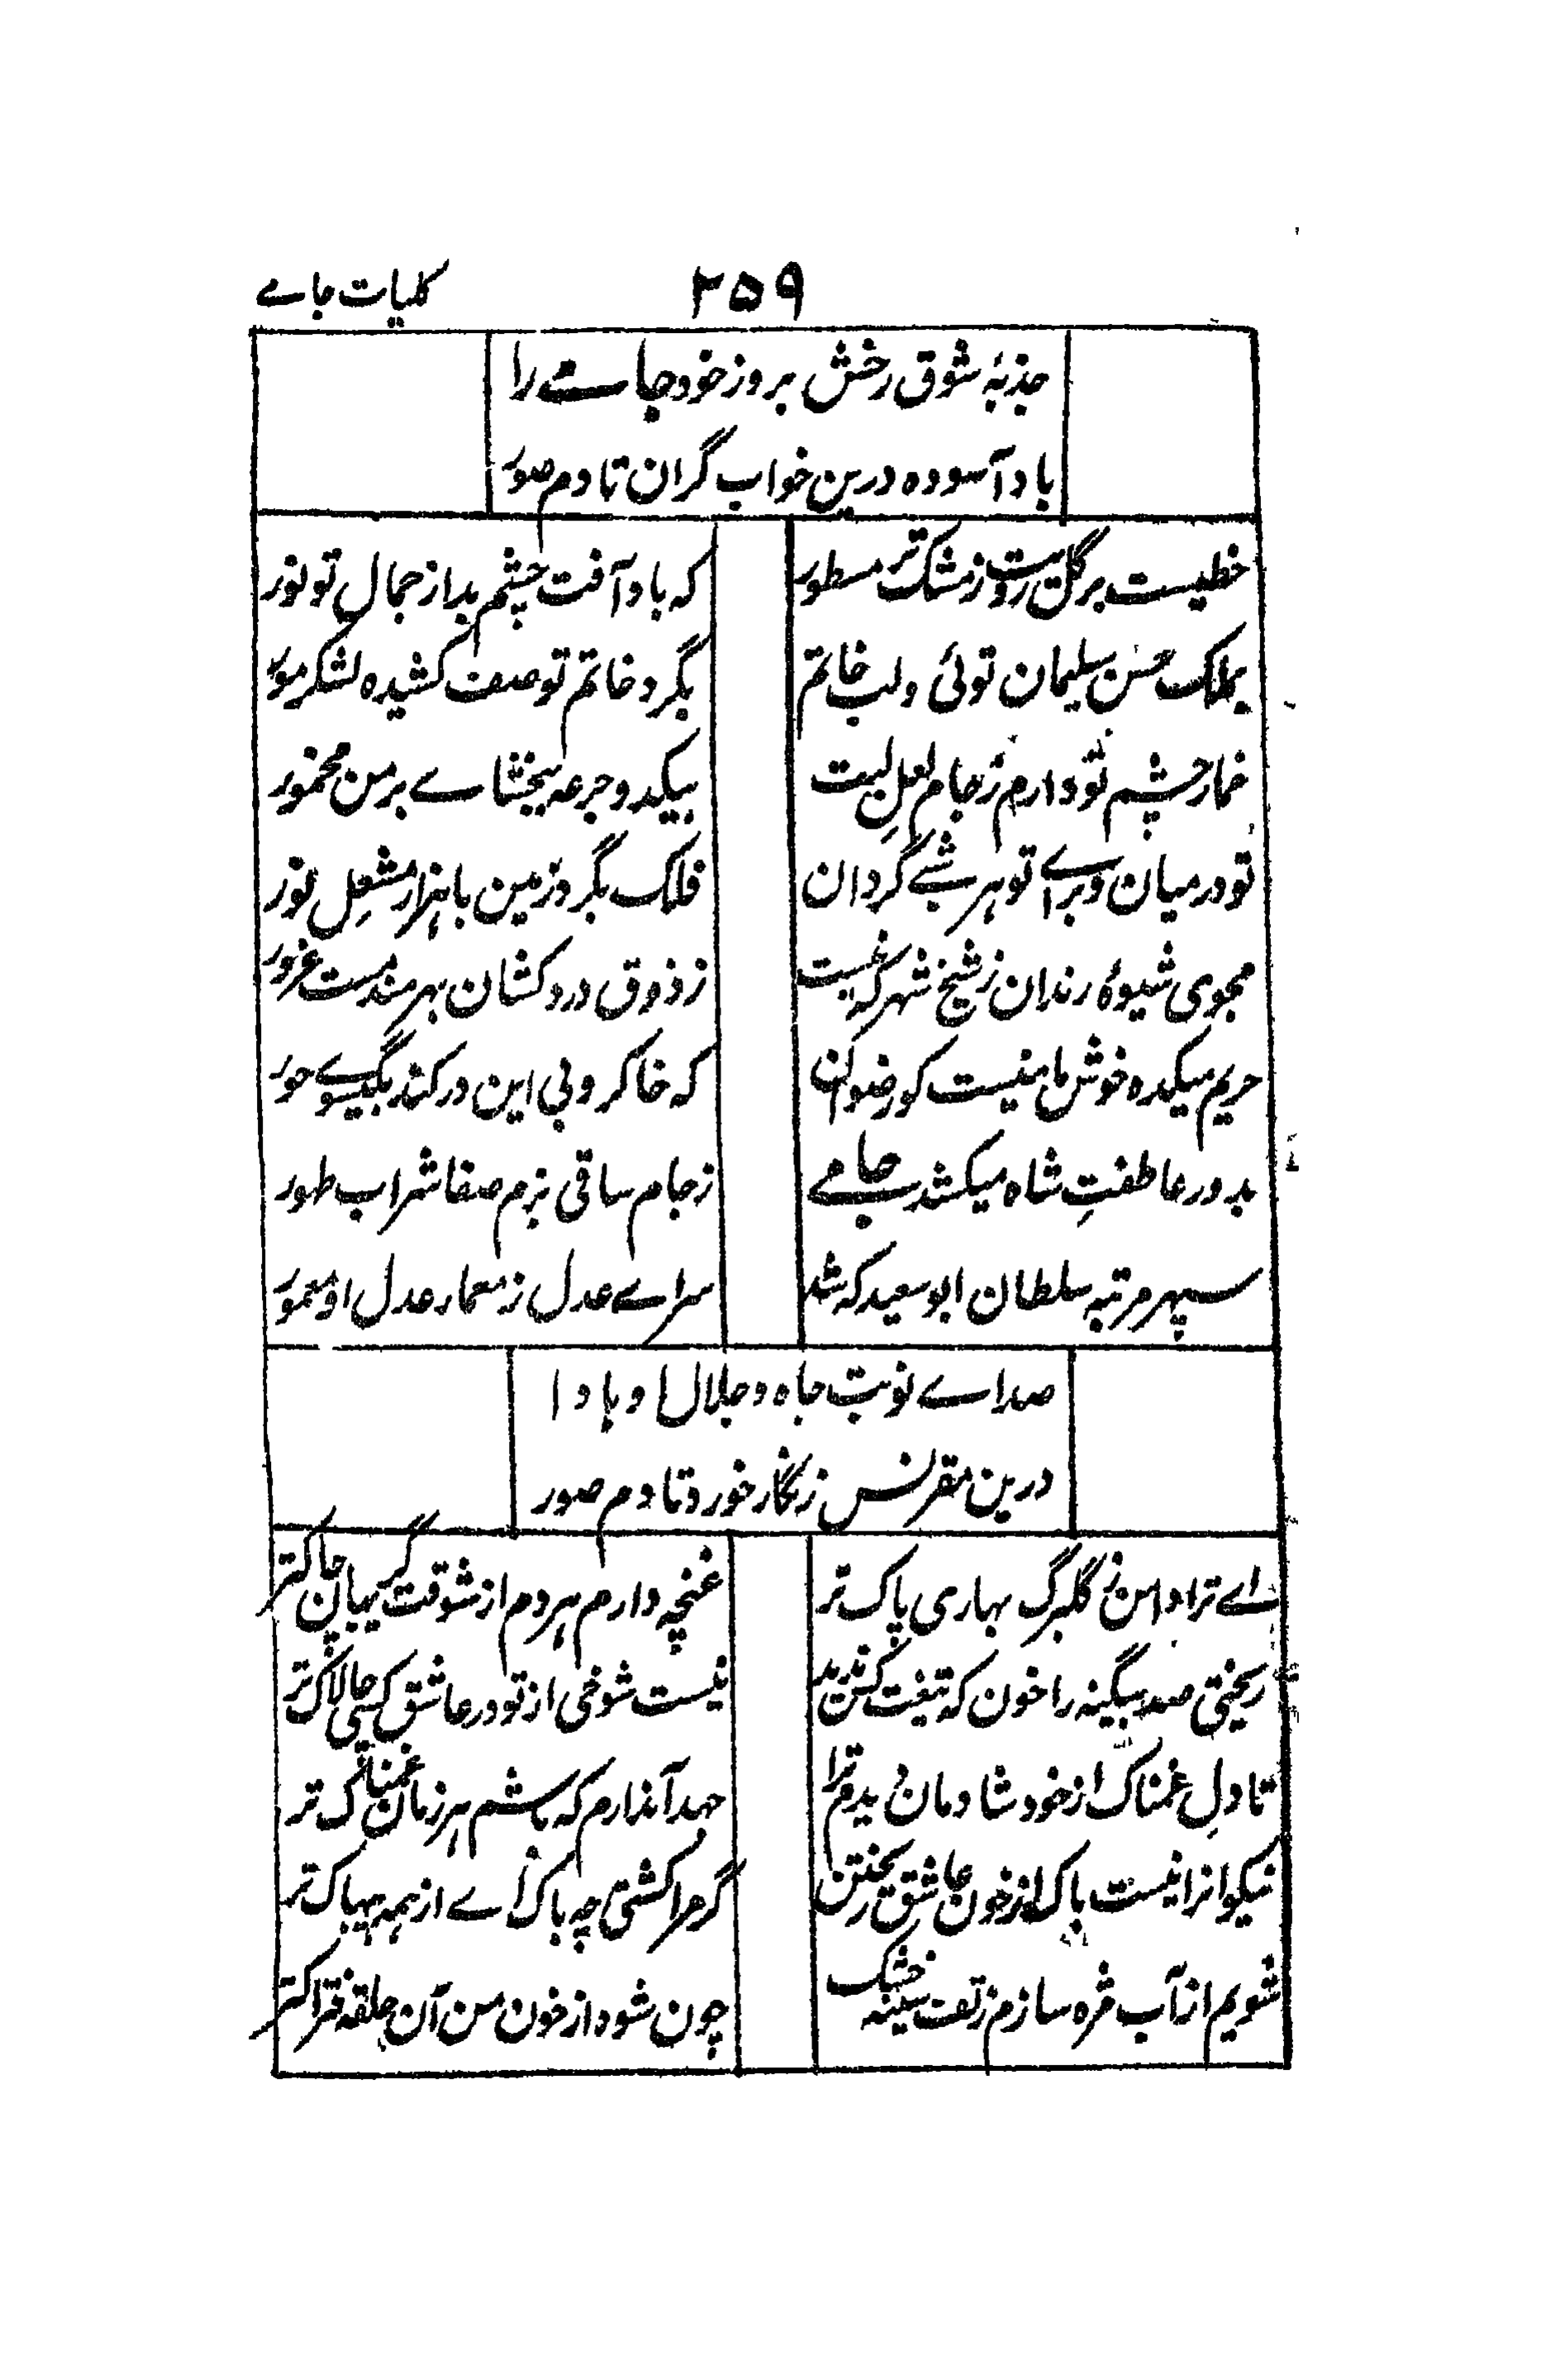 کلیات جامے
۳۵۹
جذبۂ شوق رخش بر وز خود جامے را
باد آسوده درین خواب گران تا دم صور
خطیست بر گل رویت ز مشک تر مسطور
که باد آفت چشم بد از جمال تو نور
بملک حسن سلیمان توئی و لب خاتم
بگرد خاتم تو صف کشیده لشکر مور
خمار چشم تو دارم ز جام لعلِ لبت
بیکدو جرعه ببخشاے بر من مخمور
تو در میان و براے تو هر شبے گردان
فلک بگرد زمین با هزار مشعلِ نور
مجوی شیوهٔ رندان ز شیخ شهر که نیست
ز ذوق درد کشان بهره مند مست غرور
حریم میکده خوش مامنیست کو رضوان
که خاکروبی این در کند بگیسوے حور
بدور عاطفتِ شاه میکشد جامے
ز جام ساقی بزم صفا شراب طهور
سپهر مرتبه سلطان ابو سعید که شد
سراے عدل ز معمار عدل او معمور
صداے نوبت جاه و جلال او بادا
درین مقرنس زنگار خورد تا دم صور
اے ترا دامن ز گلبرگ بهاری پاک تر
غنچه دارم هر دم از شوقت گریبان چاکتر
ریختی صد بیگنه را خون که تیغت کس ندید
نیست شوخی از تو در عاشق کشی چالاک تر
تا دلِ غمناک از خود شادمان دیدم ترا
جهد آندارم که باشم هر زمان غمناک تر
نیکوانرا نیست باک از خون عاشق ریختن
گر مرا کشتی چه باک اے از همه بیباک تر
شویم از آب مژه سازم ز تف سینه خشک
چون شود از خون من آن حلقه فتراکتر